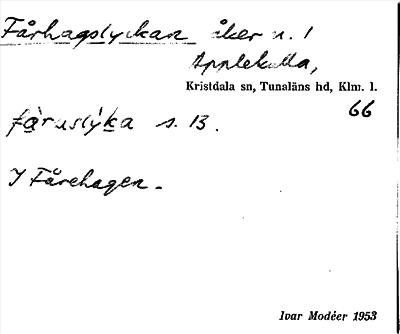 Fårhagslyckan åker n. 1
Applekulla,
Kristdala sn, Tunaläns hd, Klm. l.
66
s. 13.
I Fårehagen.
Ivar Modéer 1953